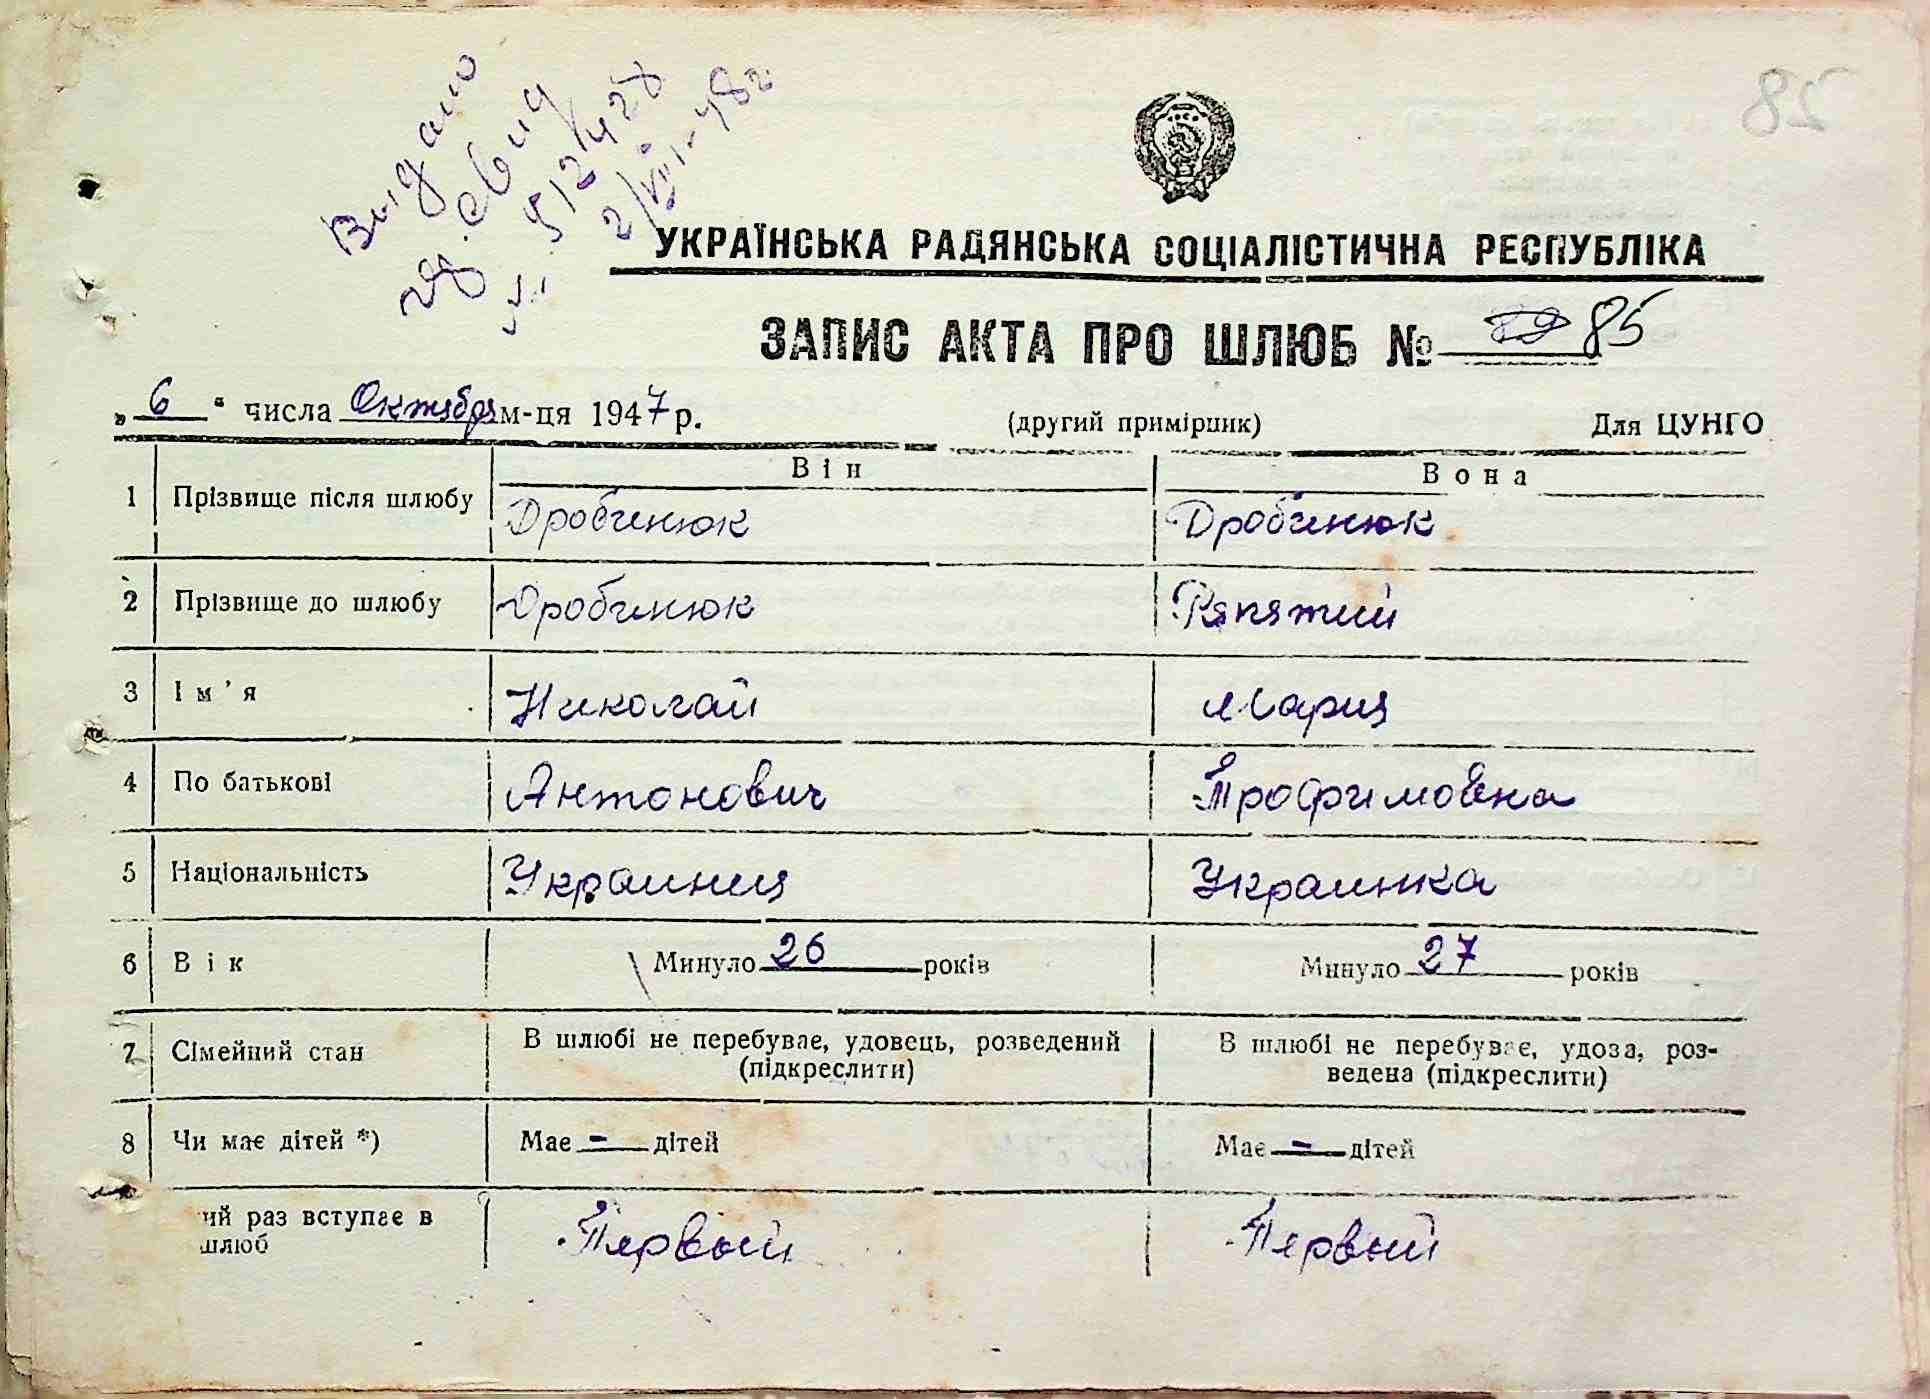 Выдано
свид
512428
2/VIII-48г.
28
УКРАЇНСЬКА РАДЯНСЬКА СОЦІАЛІСТИЧНА РЕСПУБЛІКА
ЗАПИС АКТА ПРО ШЛЮБ № 85
„ 6 “ числа Октября м-ця 1947 р. (другий примірник) Для ЦУНГО
Він Вона
1 Прізвище після шлюбу Дробчинюк Дробчинюк
2 Прізвище до шлюбу Дробчинюк
3 Ім'я Николай Мария
4 По батькові Антонович Трофимовна
5 Національність Украинец Украинка
6 Вік Минуло 26 років Минуло 27 років
7 Сімейний стан В шлюбі не перебуває, удовець, розведений (підкреслити) В шлюбі не перебуває, удова, роз-
ведена (підкреслити)
8 Чи має дітей *) Має - дітей Має - дітей
ий раз вступає в шлюб Первый Первый